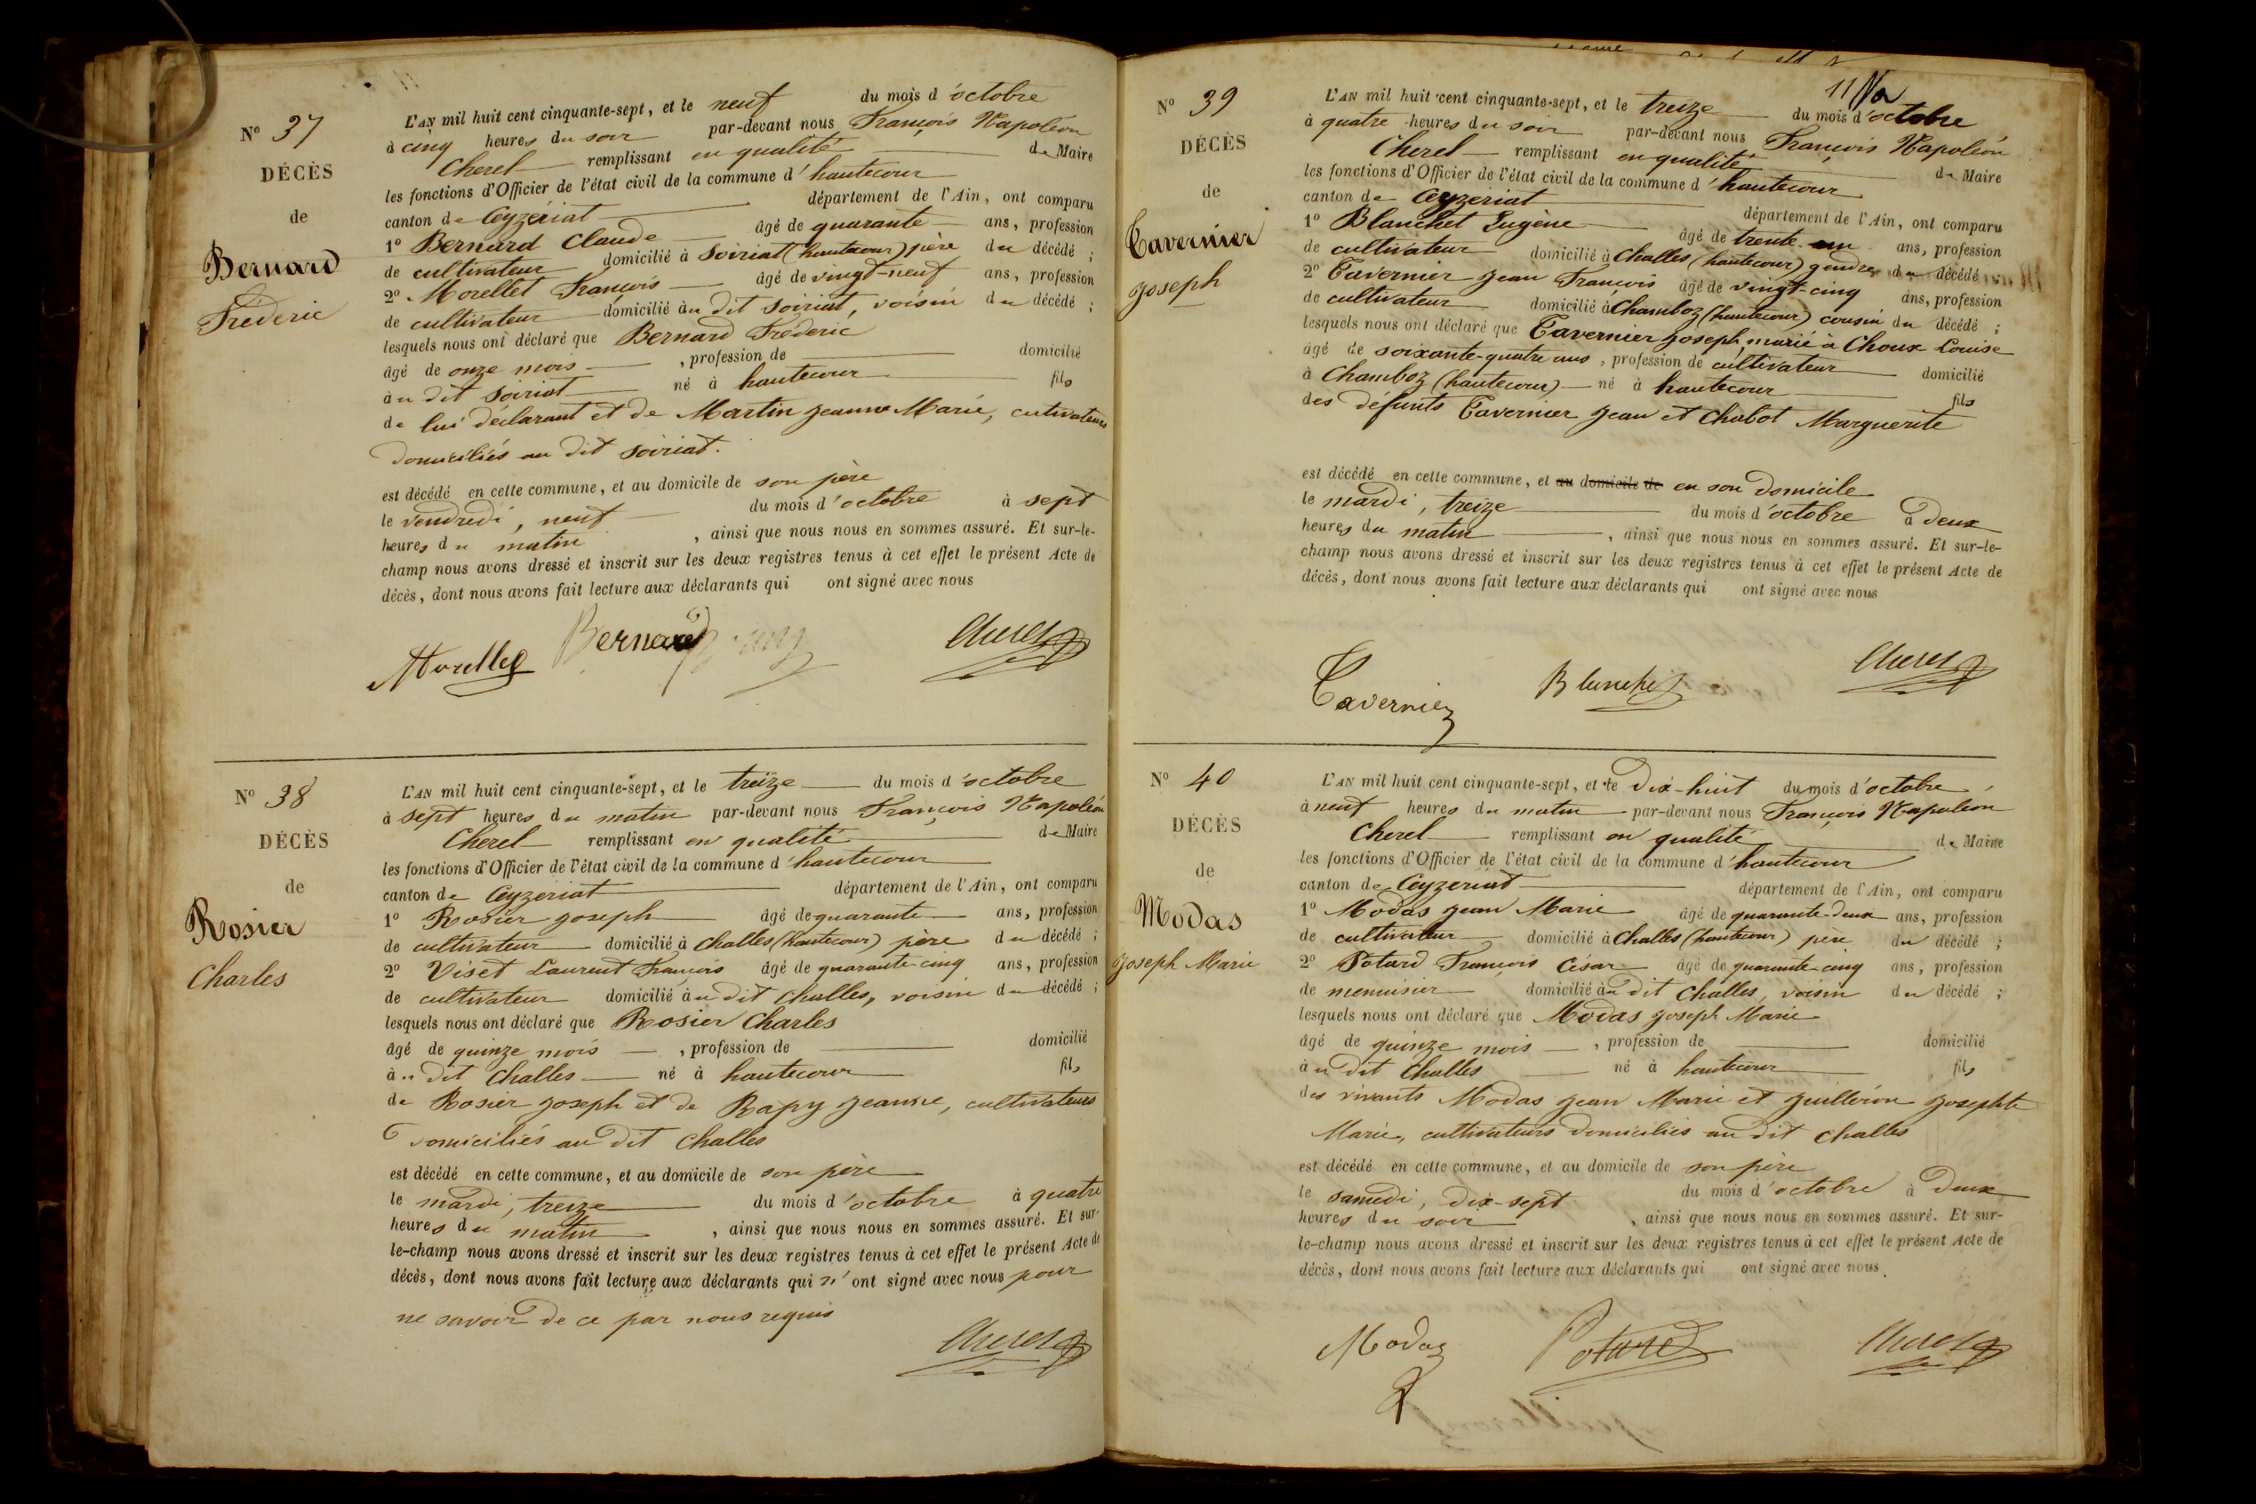 N° 37
DÉCÈS
de
Bernard
Fréderic
L'AN mil huit cent cinquante-sept, et le neuf du mois d'octobre
à cinq heures du soir par-devant nous François Napoléon
Cherel remplissant en qualité de Maire
les fonctions d'Officier de l'état civil de la commune d'hautecour
canton de Ceyzériat département de l'Ain, ont comparu
1° Bernard Claude âgé de quarante ans, profession
de cultivateur domicilié à Soiriat (hautecour) père du décédé ;
2° Morellet François âgé de vingt-neuf ans, profession
de cultivateur domicilié au dit Soiriat, voisin du décédé ;
lesquels nous ont déclaré que Bernard Fréderic
âgé de onze mois , profession de domicilié
au dit Soiriat né à hautecour fils
de lui déclarant et de Martin Jeanne Marie, cutivateurs
domiciliés au dit Soiriat.
est décédé en cette commune, et au domicile de son père
le vendredi, neuf du mois d'octobre à sept
heures du matin , ainsi que nous nous en sommes assuré. Et sur-le-
champ nous avons dressé et inscrit sur les deux registres tenus à cet effet le présent Acte de
décès, dont nous avons fait lecture aux déclarants qui ont signé avec nous
Morellet Bernard Cherel
N° 38
DÉCÈS
de
Rosier
Charles
L'AN mil huit cent cinquante-sept, et le treize du mois d'octobre
à sept heures du matin par-devant nous François Napoléon
Cherel remplissant en qualité de Maire
les fonctions d'Officier de l'état civil de la commune d'hautecour
canton de Ceyzeriat département de l'Ain, ont comparu
1° Rosier Joseph âgé de quarante ans, profession
de cultivateur domicilié à Challes (hautecour) père du décédé ;
2° Viset Laurent François âgé de quarante-cinq ans, profession
de cultivateur domicilié au dit Challes, voisin du décédé ;
lesquels nous ont déclaré que Rosier Charles
âgé de quinze mois , profession de domicilié
au dit Challes né à hautecour fils
de Rosier Joseph et de Rapy Jeanne, cultivateurs
domiciliés au dit Challes
est décédé en cette commune, et au domicile de son père
le mardi, treize du mois d'octobre à quatre
heures du matin , ainsi que nous nous en sommes assuré. Et sur-
le-champ nous avons dressé et inscrit sur les deux registres tenus à cet effet le présent Acte de
décès, dont nous avons fait lecture aux déclarants qui n'ont signé avec nous pour
ne savoir de ce par nous requis
Cherel
11
N° 39
DÉCÈS
de
Tavernier
Joseph
L'AN mil huit cent cinquante-sept, et le treize du mois d'octobre
à quatre heures du soir par-devant nous François Napoléon
Cherel remplissant en qualité de Maire
les fonctions d'Officier de l'état civil de la commune d'hautecour
canton de Ceyzeriat département de l'Ain, ont comparu
1° Blanchet Eugène âgé de trente-un ans, profession
de cultivateur domicilié à Challes (hautecour) gendre du décédé
2° Tavernier Jean François âgé de vingt-cinq ans, profession
de cultivateur domicilié à Chamboz (hautecour) cousin du décédé ;
lesquels nous ont déclaré que Tavernier Joseph, marié à Choux Louise
âgé de soixante-quatre ans, profession de cultivateur domicilié
à Chamboz (hautecour) né à hautecour fils
des défunts Tavernier Jean et Chabot Marguerite
est décédé en cette commune, et au domicile de en son domicile
le mardi, treize du mois d'octobre à deux
heures du matin , ainsi que nous nous en sommes assuré. Et sur-le-
champ nous avons dressé et inscrit sur les deux registres tenus à cet effet le présent Acte de
décès, dont nous avons fait lecture aux déclarants qui ont signé avec nous
Tavernier Blanchet Cherel
N° 40
DÉCÈS
de
Modas
Joseph Marie
L'AN mil huit cent cinquante-sept, et le dix-huit du mois d'octobre
à neuf heures du matin par-devant nous François Napoléon
Cherel remplissant en qualité de Maire
les fonctions d'Officier de l'état civil de la commune d'hautecour
canton de Ceyzeriat département de l'Ain, ont comparu
1° Modas Jean Marie âgé de quarante-deux ans, profession
de cultivateur domicilié à Challes (hautecour) père du décédé ;
2° Potard François César âgé de quarante-cinq ans, profession
de menuisier domicilié au dit Challes, voisin du décédé ;
lesquels nous ont déclaré que Modas Joseph Marie
âgé de quinze mois , profession de domicilié
au dit Challes né à hautecour fils
des vivants Modas Jean Marie et Josephte
Marie, cultivateurs domiciliés au dit Challes
est décédé en cette commune, et au domicile de son père
le samedi, dix-sept du mois d'octobre à deux
heures du soir , ainsi que nous nous en sommes assuré. Et sur-
le-champ nous avons dressé et inscrit sur les deux registres tenus à cet effet le présent Acte de
décès, dont nous avons fait lecture aux déclarants qui ont signé avec nous.
Modas Potard Cherel